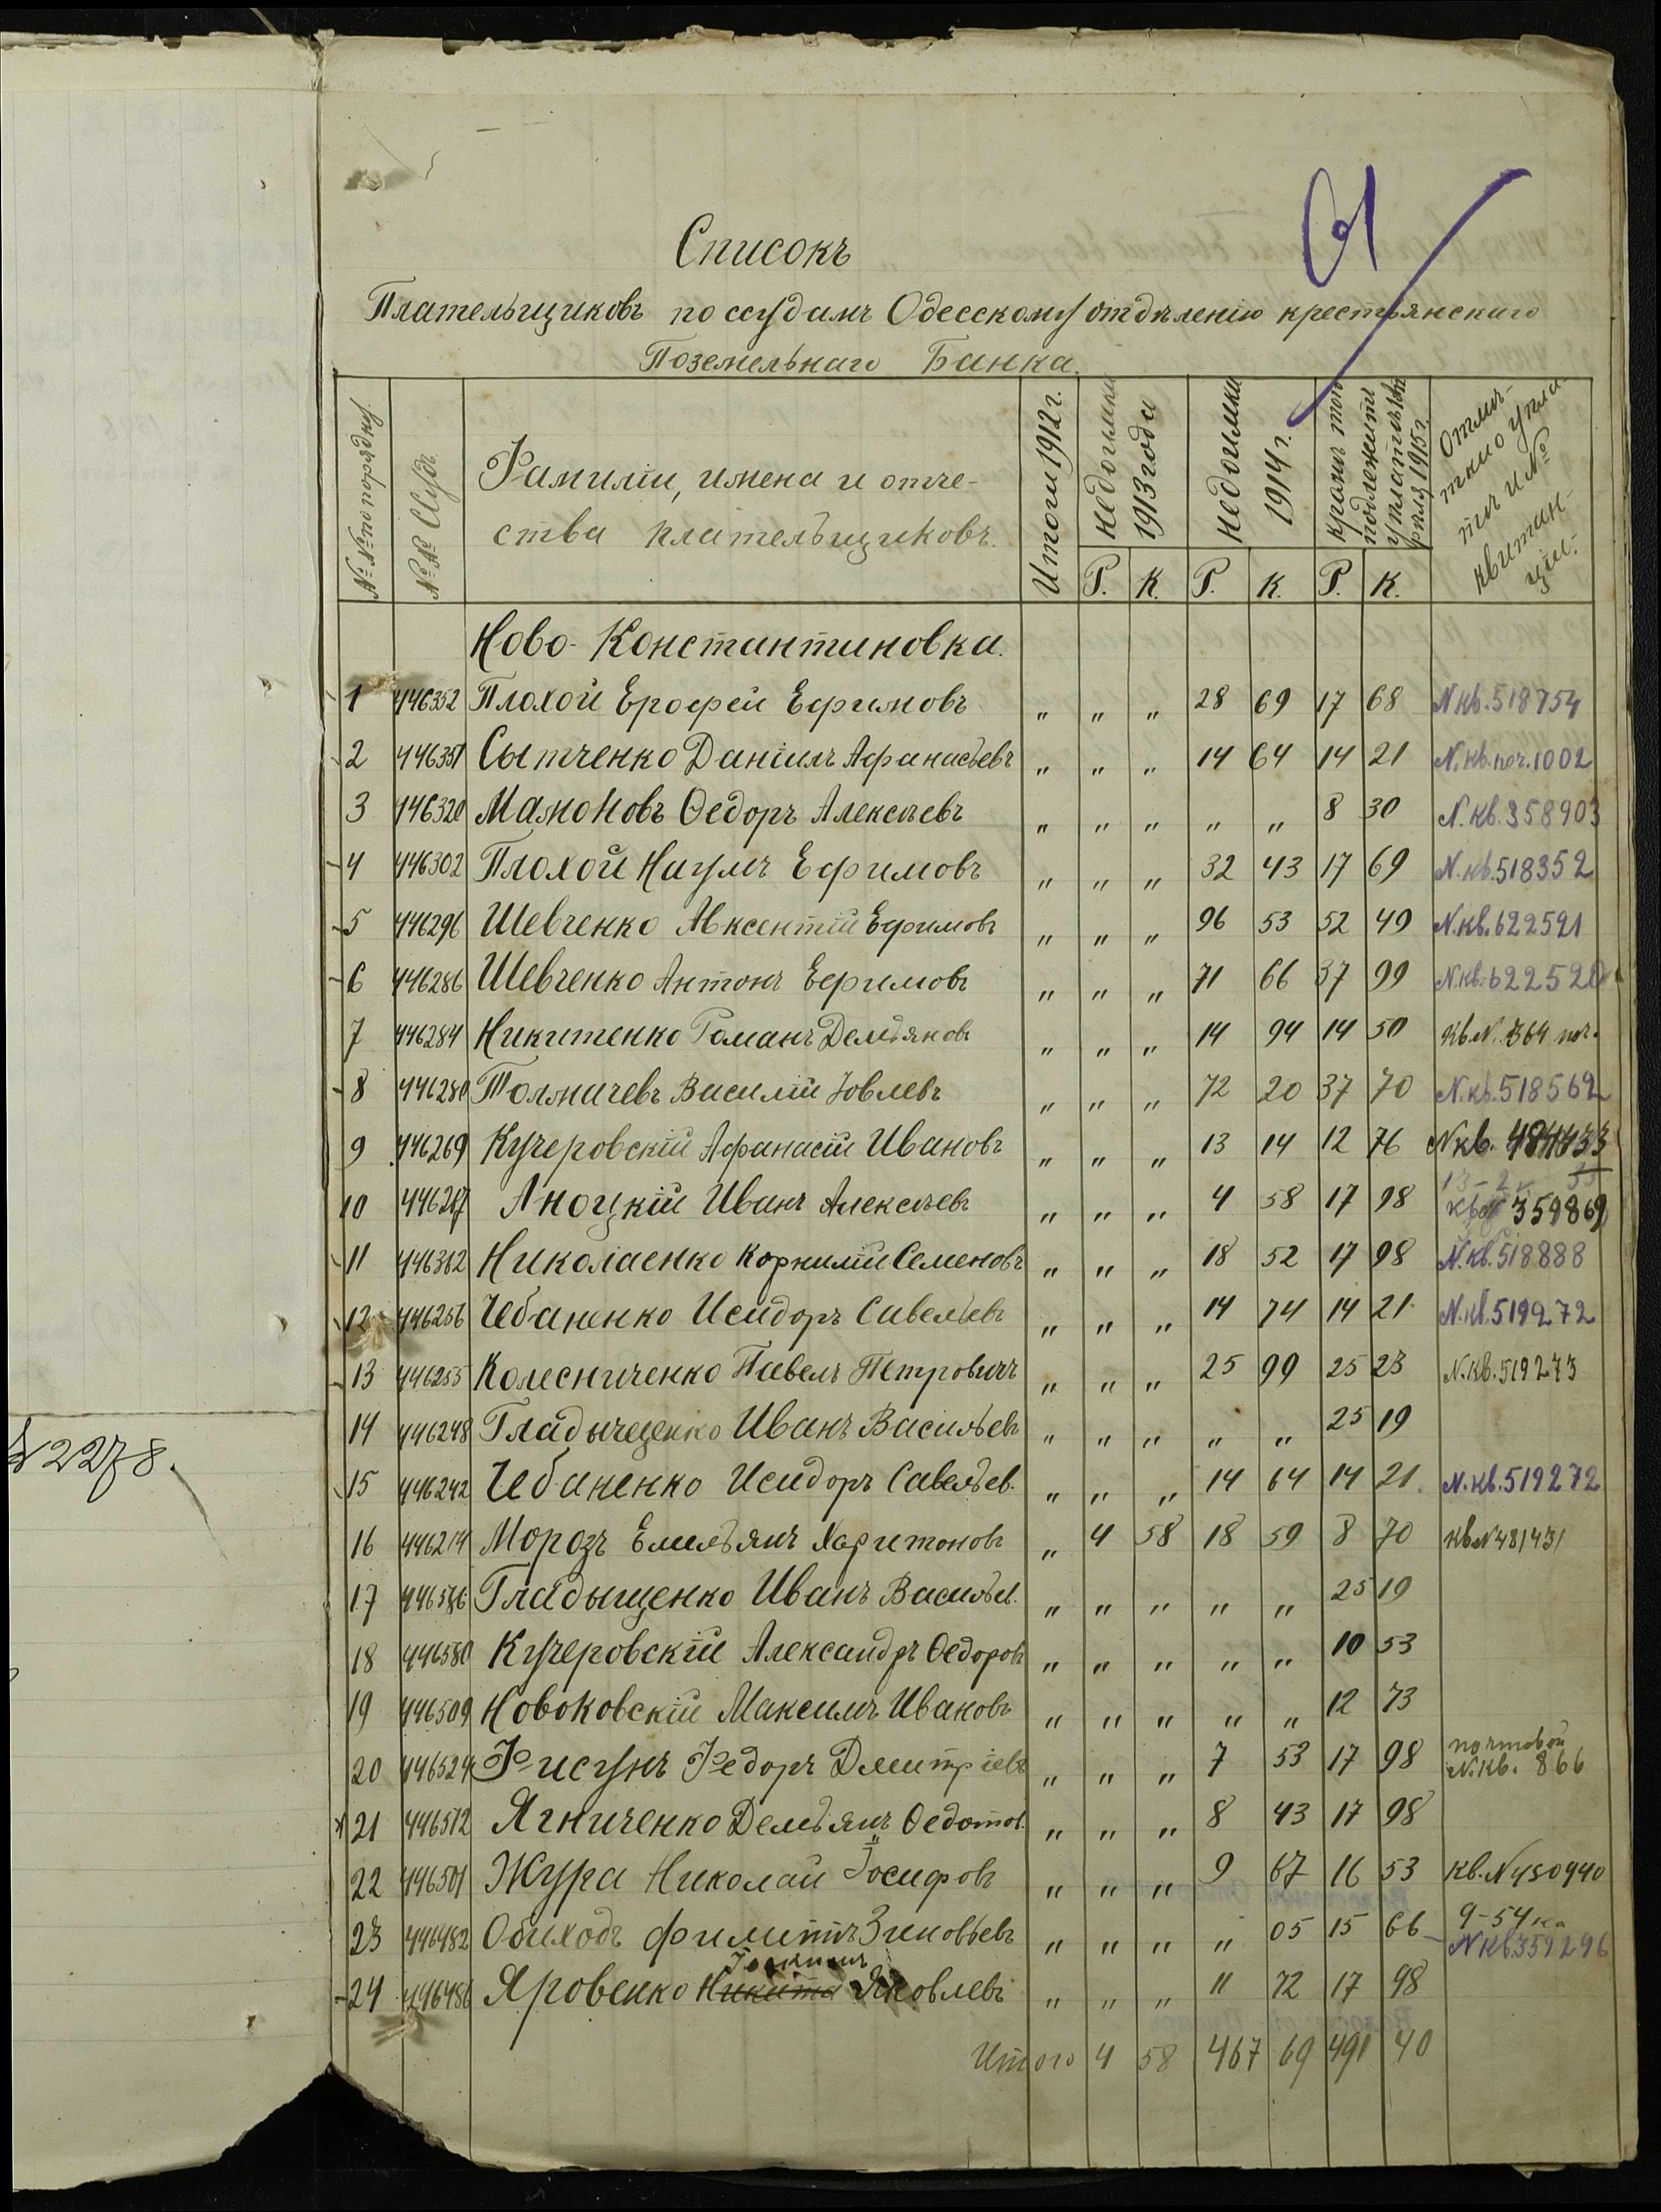 Списокъ
Плательщиковъ по ссудамъ Одесскому отдѣленію крестьянскаго
Поземельнаго Банка.
№№ по порядку
№№ ссудъ
Фамиліи, имена и отче-
ства плательщиковъ.
Итого 1912 г.
недоимки 1913 года
недоимки 1914 г.
кромѣ того подлежитъ уплатить въ 1915 г.
Отмѣ-
тки о упла
тѣ и №
квитан-
ціи.
Р. К. Р. К. Р. К.
Ново-Константиновка.
1 446352 Плохой Ерофей Ефимовъ " " " 28 69 17 68 N кв. 518754
2 446351 Сытченко Даніилъ Афанасьевъ " " " 14 64 14 21 N. кв. поч. 1002
3 446320 Мамоновъ Ѳедоръ Алексѣевъ " " " " " 8 30 N. кв. 358903
4 446302 Плохой Наумъ Ефимовъ " " " 32 43 17 69 N. кв. 518352
5 446296 Шевченко Авксентій Ефимовъ " " " 96 53 52 49 N. кв. 622521
6 446286 Шевченко Антонъ Ефимовъ " " " 71 66 37 99 N. кв. 622520
7 446284 Никитенко Романъ Демьяновъ " " " 14 94 14 50 Кв. N. 364 поч.
8 446280 Толмачевъ Василій Іовлевъ " " " 72 20 37 70 N. кв. 518562
9 446269 Кучеровскій Афанасій Ивановъ " " " 13 14 12 76 N кв. 484433
10 Аноцкій Иванъ Алексѣевъ " " " 4 58 17 98 359869
11 446382 Николаенко Корнилій Семеновъ " " " 18 52 17 98 N. кв. 518888
12 446256 Чебаненко Исидоръ Савельевъ " " " 14 74 14 21 N. кв. 519272
13 446255 Колесниченко Павелъ Петровичъ " " " 25 99 25 23 N. кв. 519273
14 446248 Гладыщенко Иванъ Васильевъ " " " " " 25 19
15 446242 Чебаненко Исидоръ Савельев. " " " 14 64 14 21 N. кв. 519272
16 446214 Морозъ Емельянъ Харитоновъ " 4 58 18 59 8 70 Кв N 481431
17 446586 Гладыщенко Иванъ Васильев. " " " " " 25 19
18 446580 Кучеровскій Александръ Ѳедоровъ " " " " " 10 53
19 446509 Новоковскій Максимъ Ивановъ " " " " " 12 73
20 446524 Фисунъ Федоръ Дмитріевъ " " " 7 53 17 98 почтовой N. кв. 866
21 446512 Ягниченко Демьянъ Ѳедотов. " " " 8 43 17 98
22 446501 Жура Николай Іосифовъ " " " 9 67 16 53 Кв. N 480940
23 446482 Обиходъ Филиппъ Зиновьевъ " " " " 05 15 66 9-54 к N кв 359296
24 446486 Яровенко Никита Іоакимъ Яковлевъ " " " 11 72 17 98
Итого 4 58 467 69 491 40
2278.